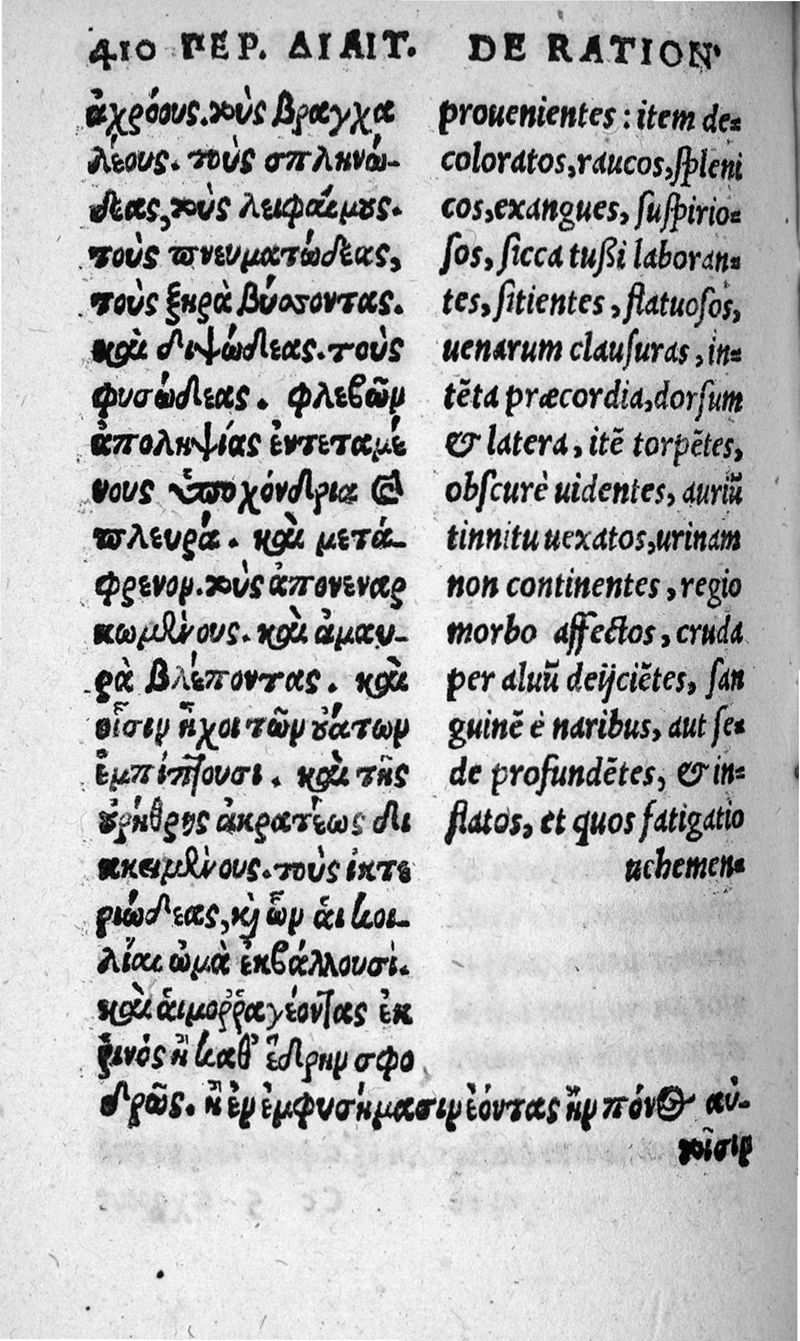 410 ΠΕΡ. ΔΙΑΙΤ. DE RATION
ἀχρόους. τοὺς βραγχα
λέους. τοὺς σπληνώ-
δεας, τοὺς λειφαίμους.
τοὺς πνευματώδεας,
τοὺς ξηρὰ βύσσοντας.
καὶ διψώδεας. τοὺς
φυσώδεας. φλεβῶν
ἀποληψίας ἐντεταμέ
νους ὑποχόνδρια καὶ
πλευρά. καὶ μετά-
φρενον. τοὺς ἀπονεναρ
κωμένους. καὶ ἀμαυ-
ρὰ βλέποντας. καὶ
οἷσιν ἦχοι τῶν οὐάτων
ἐμπίπτουσι. καὶ τῆς
οὐρήθρης ἀκρατέως δι
ακειμένους. τοὺς ἰκτε
ριώδεας, κὶ ὧν ἁι κοι-
λίαι ὠμὰ ἐκβάλλουσι.
καὶ ἁιμοῤῥαγέοντας ἐκ
ῥινός ἢ καθ' ἕδρην σφο
δρῶς. ἢ ἐν ἐμφυσήμασιν ἐόντας ἢν πόνος αὐ-
τοῖσιν
prouenientes: item de=
coloratos, raucos, spleni
cos, exangues, suspirio=
sos, sicca tußi laboran=
tes, sitientes, flatuosos,
uenarum clausuras, in=
tẽta præcordia, dorsum
& latera, itẽ torpẽtes,
obscurè uidentes, auriũ
tinnitu uexatos, urinam
non continentes, regio
morbo affectos, cruda
per aluũ deijciẽtes, san
guinẽ è naribus, aut se=
de profundẽtes, & in=
flatos, et quos fatigatio
uehemen=